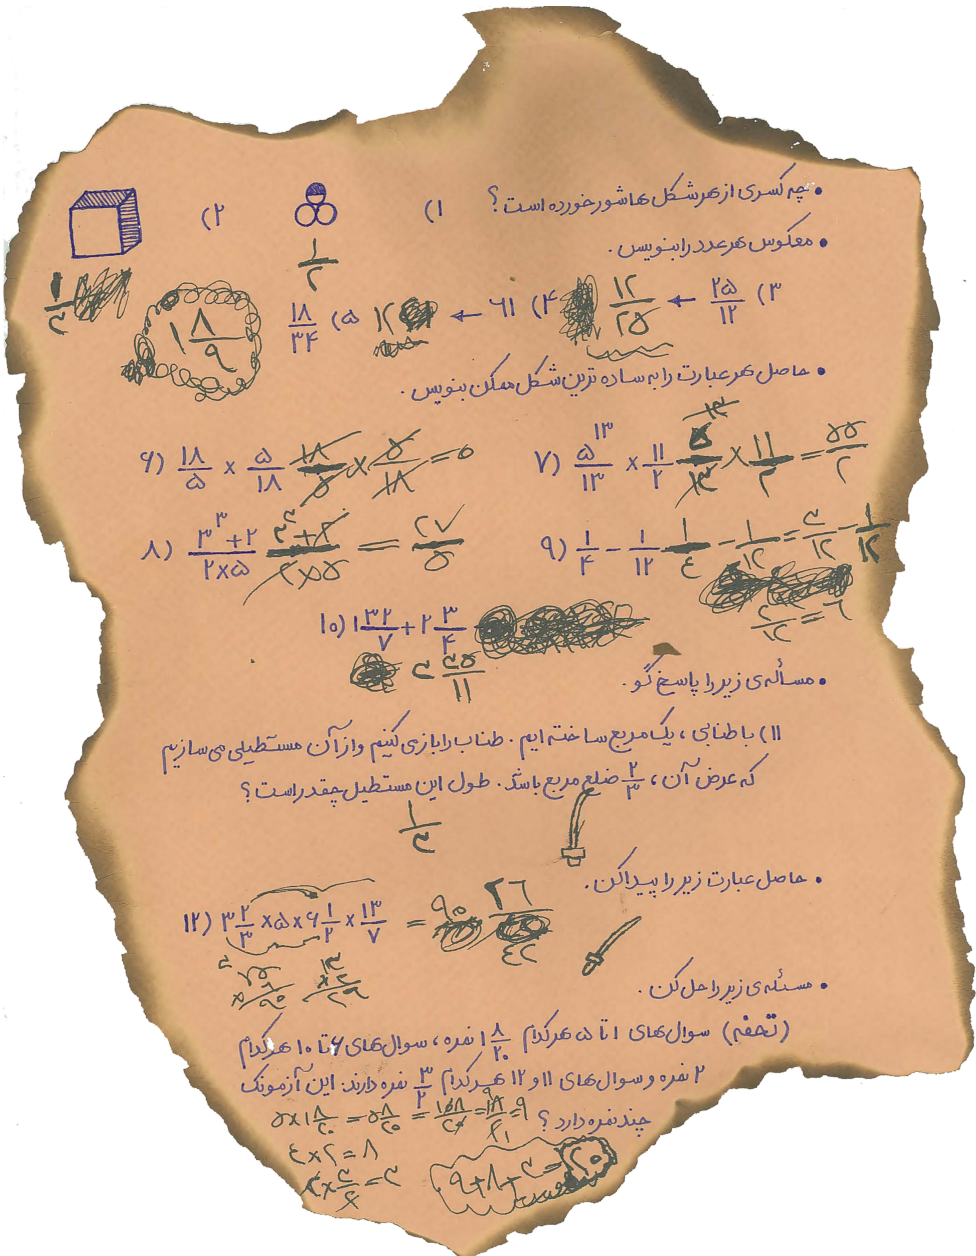 • چه کسری از هر شکل ها شور خورده است؟ ۱) ۲)
۱/۲
۱/۲
• معکوس هر عدد را بنویس.
۳) ۲۵/۱۲ ← ۱۲/۲۵ ۴) ۶۱ ← ۱۲ ۵) ۱۸/۳۴ ۱ ۸/۹
• حاصل هر عبارت را به ساده ترین شکل ممکن بنویس.
۶) ۱۸/۵ × ۵/۱۸ ۱۸/۵ × ۵/۱۸ = ۰ ۷) ۵ ۱۳/۱۳ × ۱۱/۲ × ۱۱/۲ = ۵۵/۲
۸) ۳^۳+۲/۲×۵ ۳^۳+۲/۲×۵ = ۲۷/۵ ۹) ۱/۴ - ۱/۱۲ ۱/۴ - ۱/۱۲ = ۳/۱۲ - ۱/۱۲
۲/۱۲ = ۶
۱۰) ۱ ۳۲/۷ + ۲ ۳/۴
= ۳ ۳۵/۱۱
• مسأله ی زیر را پاسخ گو.
۱۱) با طنابی، یک مربع ساخته ایم. طناب را باز می کنیم و از آن مستطیلی می سازیم
که عرض آن، ۲/۳ ضلع مربع باشد. طول این مستطیل چقدر است؟
۱/۳
• حاصل عبارت زیر را پیدا کن.
۱۲) ۳ ۲/۳ × ۵ × ۶ ۱/۲ × ۱۳/۷ = ۹۰ ۲۶/۴۲
• مسئله ی زیر را حل کن.
(تحفه) سوال های ۱ تا ۵ هر کدام ۱ ۸/۲۰ نمره، سوال های ۶ تا ۱۰ هر کدام
۲ نمره و سوال های ۱۱ و ۱۲ هر کدام ۳/۲ نمره دارند. این آزمونک
چند نمره دارد؟
۵×۱ ۸/۲۰ = ۵ ۸/۲۰ = ۱۰۸/۲۰ = ۱۸/۲ = ۹
۴×۲=۸
۲×۳/۲=۳
۹+۸+۳=۲۰